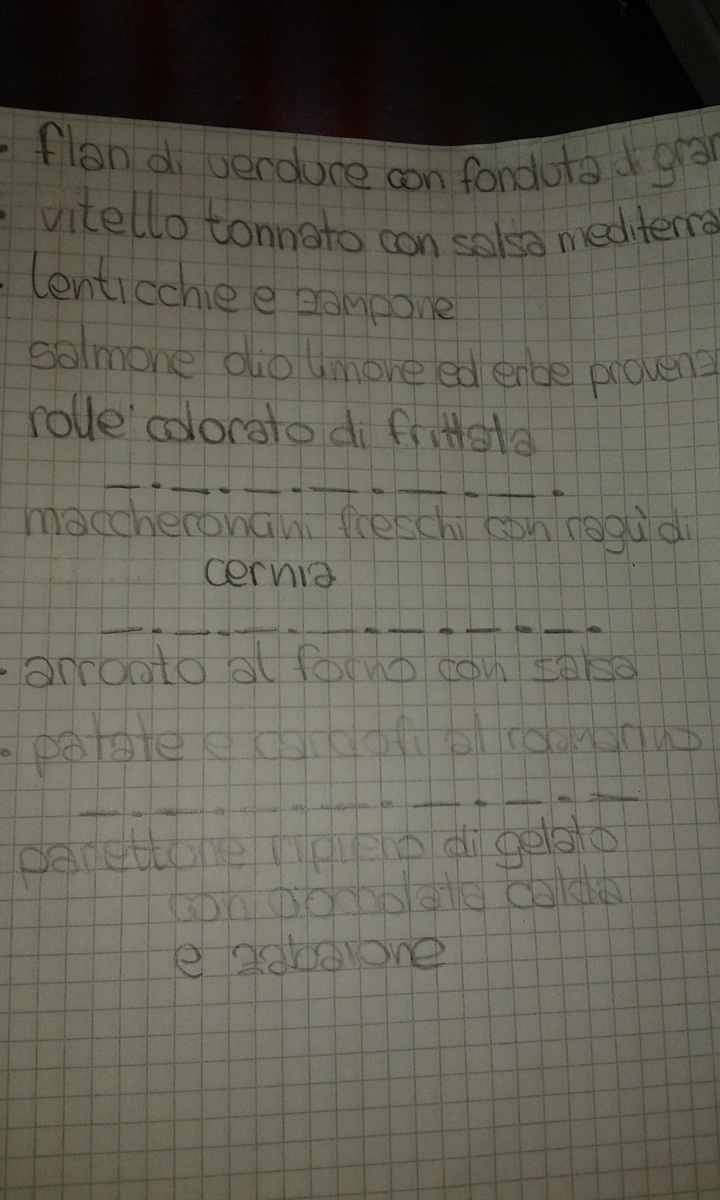 · flan di verdure con fonduta di gran
· vitello tonnato con salsa mediterra
· lenticchie e zampone
salmone olio limone ed erbe provenz
rolle' colorato di frittata
maccheroncini freschi con ragù di
cernia
· arrosto al forno con salsa
· patate e carciofi al rosmarino
panettone ripieno di gelato
con cioccolata calda
e zabaione